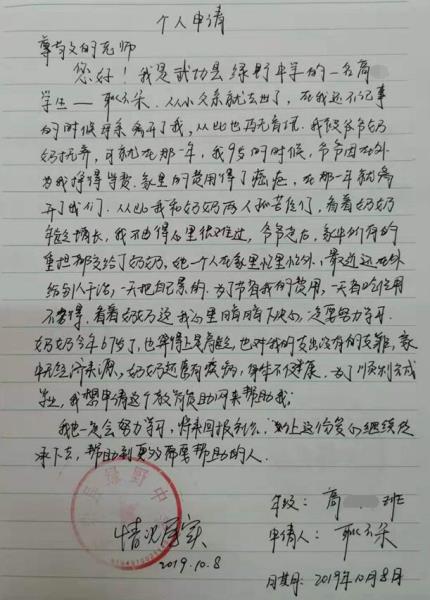 个人申请
尊敬的老师
您好！我是武功县绿野中学的一名高
学生——耿
从小父亲就去世了，在我还不记事
的时候母亲离开了我，从此也再无音讯。我跟爷爷奶
奶 ，可就在那一年，我9岁的时候，爷爷因在外
为我挣得学费、家里的费用得了癌症，在那一年就离
开了我们。从此我和奶奶两人 ，看着奶奶
年龄增长，我不由得心里很难过，爷爷走后，家中所有的
重担都交给了奶奶，她一个人在家里忙里忙外，最近还在外
给别人干活，一天把自己累的。为了节省我的费用，一天
不舍得。看着奶奶这 我心里 ，一定要努力学习。
奶奶今年67岁了，也算得上是高龄，也对我的 没有 ，家
中无经济来源，奶奶还患有疾病，身体不健康。为了顺利完成
学业，我想申请这个 资助 来帮助我。
我也一定会努力学习，将来回报社会，让这份爱心继续传
承下去，帮助到更多需要帮助的人。
绿野中
情况属实
2019.10.8
年级：高 班
申请人：耿
日期：2019年10月8日